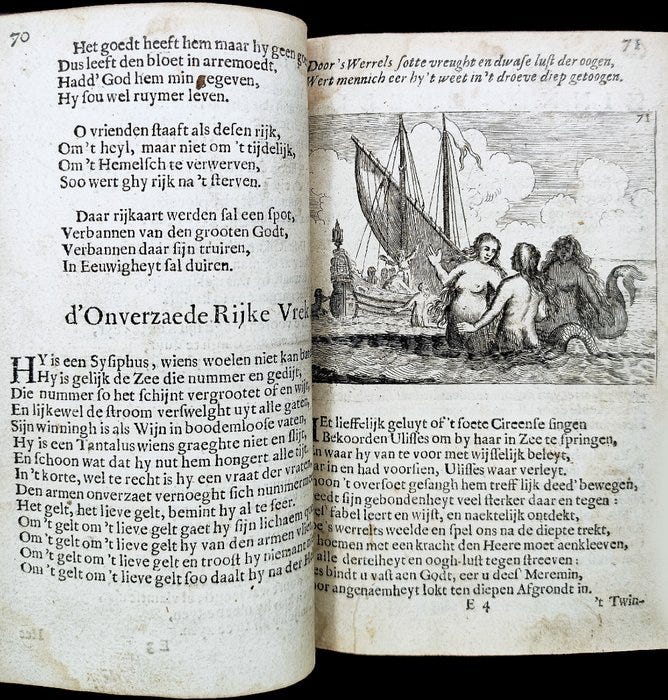 70
Het goedt heeft hem maar hy geen
Dus leeft den bloet in arremoedt,
Hadd' God hem min gegeven,
Hy sou wel ruymer leven.
O vrienden staaft als desen rijk,
Om 't heyl, maar niet om 't tijdelijk,
Om 't Hemelsch te verwerven,
Soo wert ghy rijk na 't sterven.
Daar rijkaart werden sal een spot,
Verbannen van den grooten Godt,
Verbannen daar sijn truiren,
In Eeuwigheyt sal duiren.
d'Onverzaede Rijke Vrek
HY is een Sysiphus, wiens woelen niet kan
Hy is gelijk de Zee die nummer en gedijt,
Die nummer so het schijnt vergrootet of en
En lijkewel de stroom verswelght uyt alle gaten,
Sijn winningh is als Wijn in boodemloose vaten,
Hy is een Tantalus wiens graeghte niet en slijt,
En schoon wat dat hy nut hem hongert alle tijt.
In 't korte, wel te recht is hy een vraat der vraten,
Den armen onverzaet vernoeght sich nummermeer
Het gelt, het lieve gelt, bemint hy al te seer.
Om 't gelt om 't lieve gelt gaet hy sijn lichaem
Om 't gelt om 't lieve gelt hy van den armen
Om 't gelt om 't lieve gelt en troost hy niemant
Om 't gelt om 't lieve gelt soo daalt hy na der
E 3
71
Door 's Werrels sotte vreught en dwase lust der oogen,
Wert mennich eer hy 't weet in 't droeve diep getoogen.
71
Et lieffelijk geluyt of 't soete Circense singen
Bekoorden Ulisses om by haar in Zee te springen,
waar hy van te voor met wijsselijk beleyt,
in en had voorsien, Ulisses waar verleyt.
't oversoet gesangh hem treff lijk deed' bewegen,
sijn gebondenheyt veel sterker daar en tegen:
fabel leert en wijst, en naektelijk ontdekt,
's werrelts weelde en spel ons na de diepte trekt,
hoemen met een kracht den Heere moet aenkleeven,
alle dertelheyt en oogh-lust tegen streeven:
bindt u vast aen Godt, eer u dees' Meremin,
angenaemheyt lokt ten diepen Afgrondt in.
E 4
't Twin-